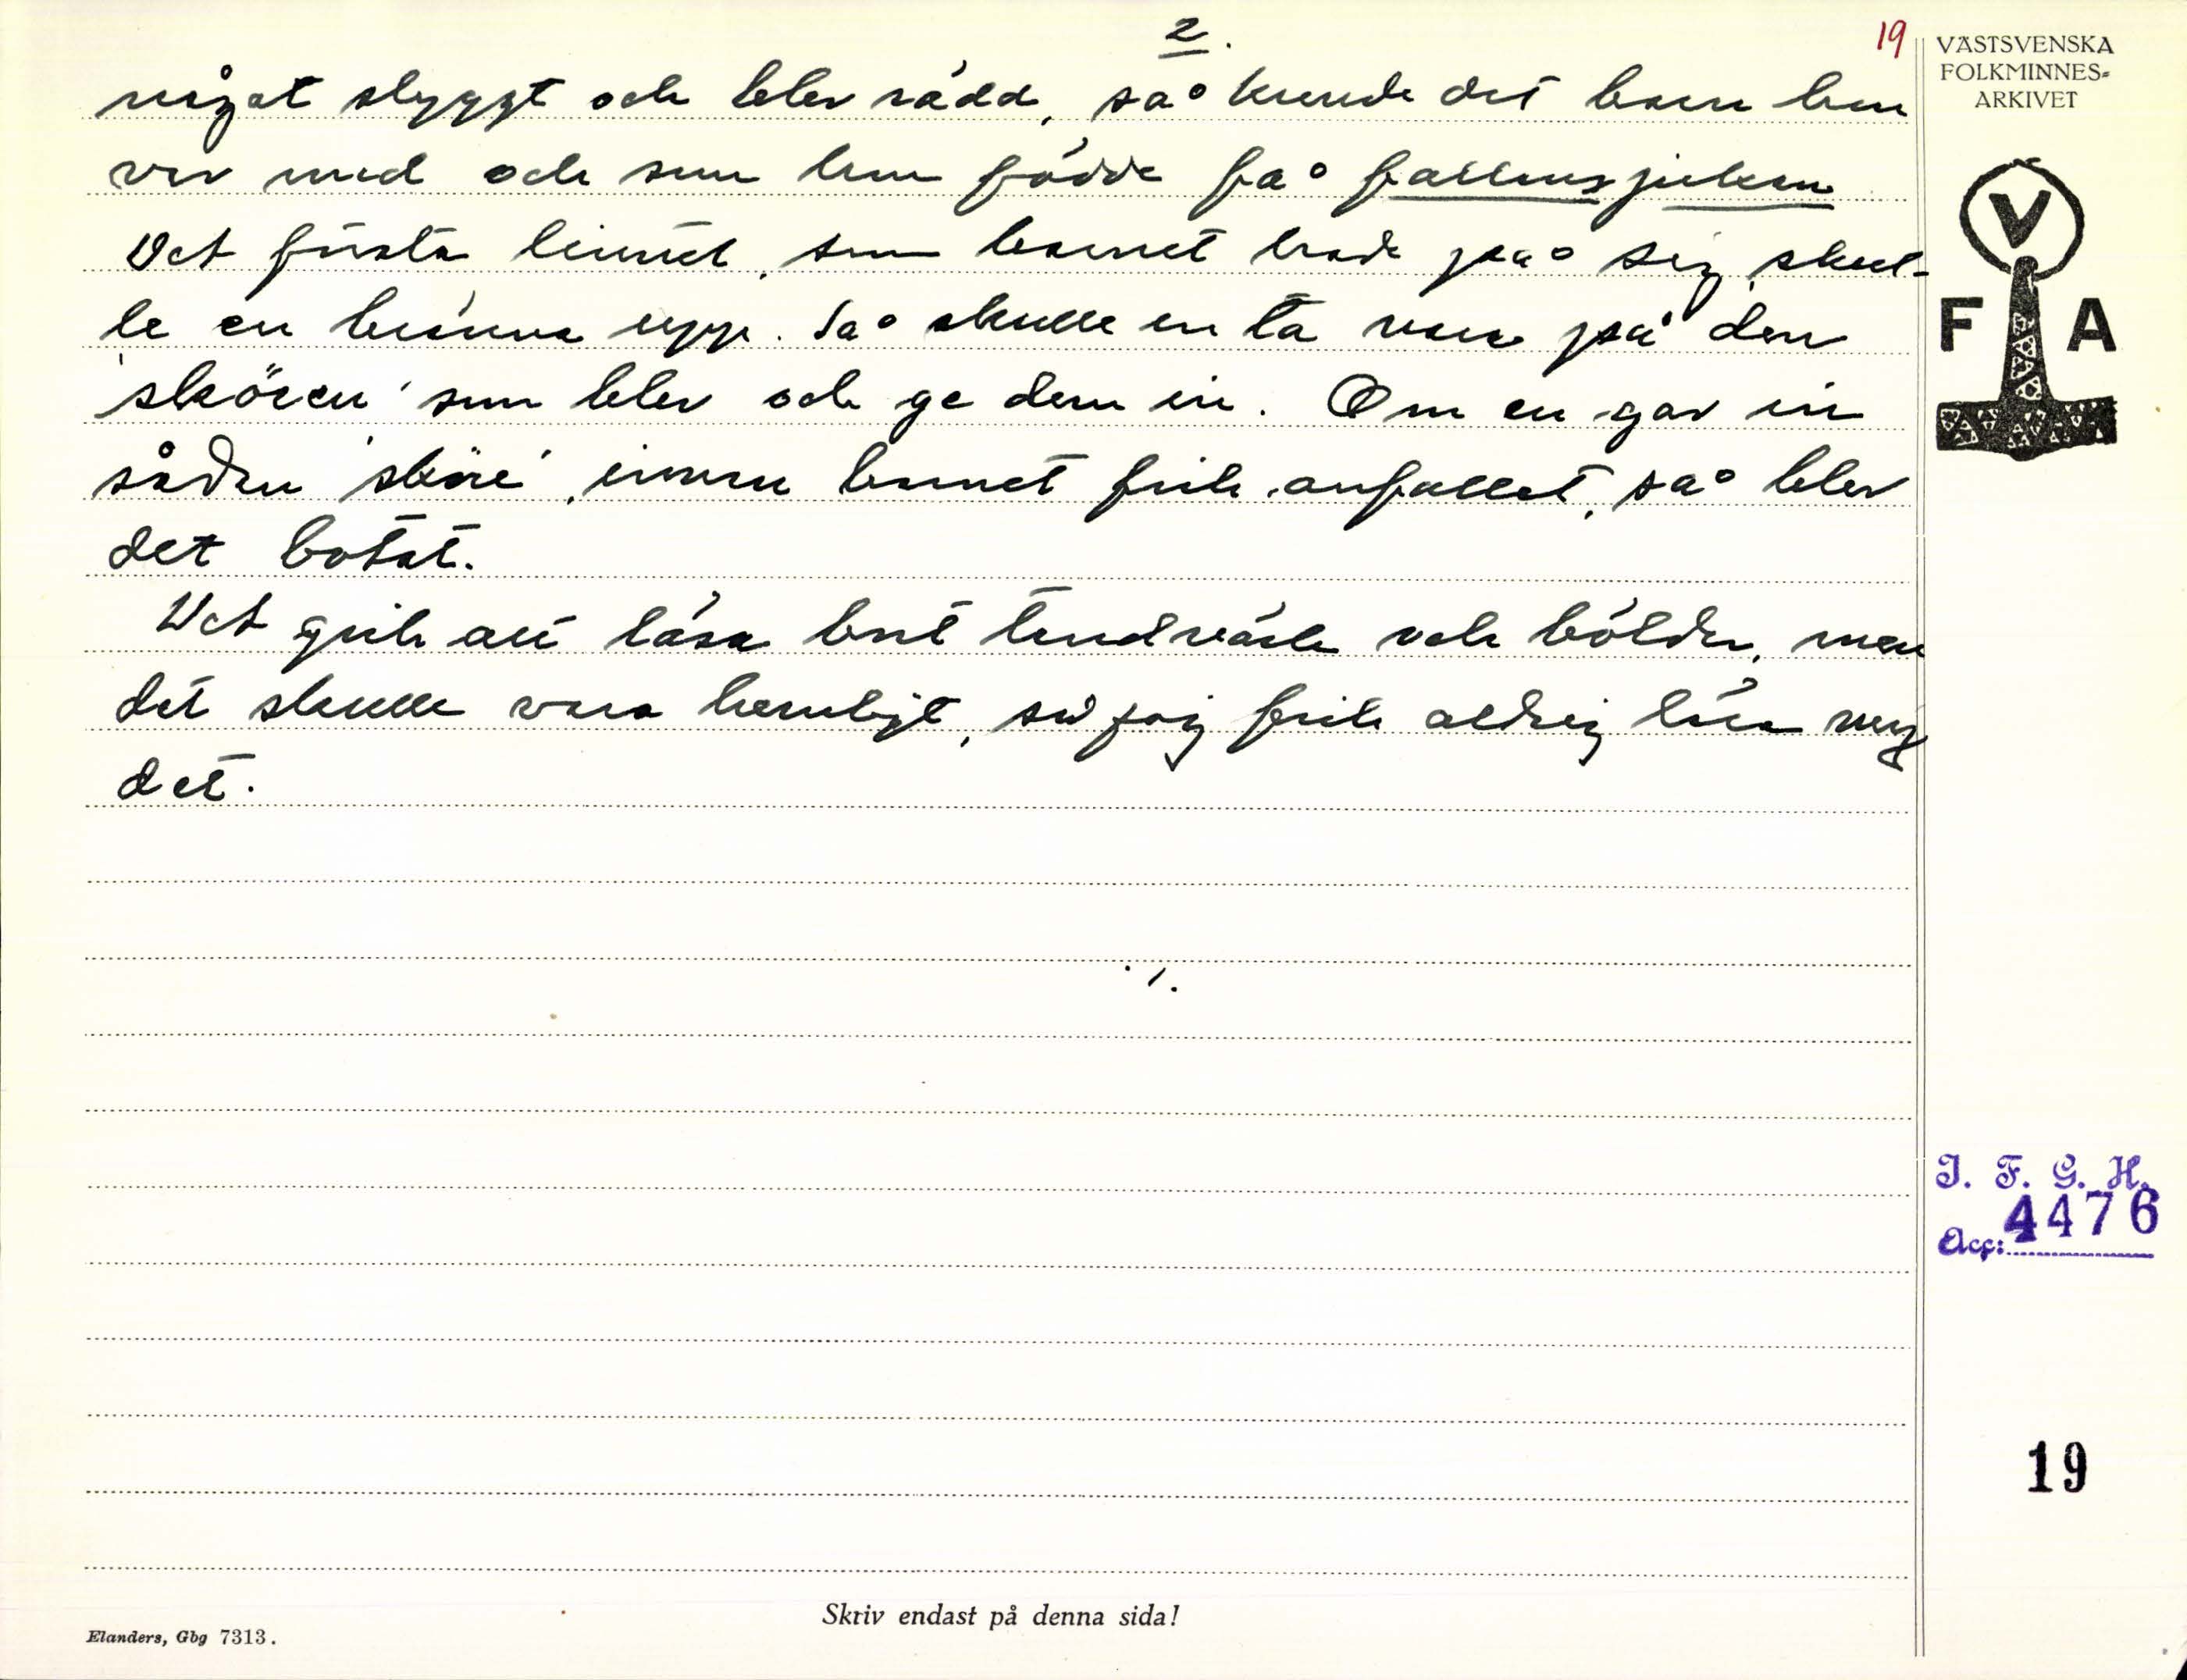 2.
19
VÄSTSVENSKA
FOLKMINNES-
ARKIVET
något styggt och blev rädd, så kunde det barn hon
var med och som hon födde få fallensjukan
Det första linnet, som barnet hade på sig, skul-
V
le en bränna upp. Så skulle en ta vara på den
F A
'skören' som blev och ge dem in. Om en gav in
sådan 'sköre', innan barnet fick anfallet, så blev
det botat.
Det gick att läsa bort tandvärk och bölder, men
det skulle vara hemligt, så jag fick aldrig lära mig
det.
I. F. G. H.
Acc: 4476
19
Skriv endast på denna sida!
Elanders, Gbg 7313.